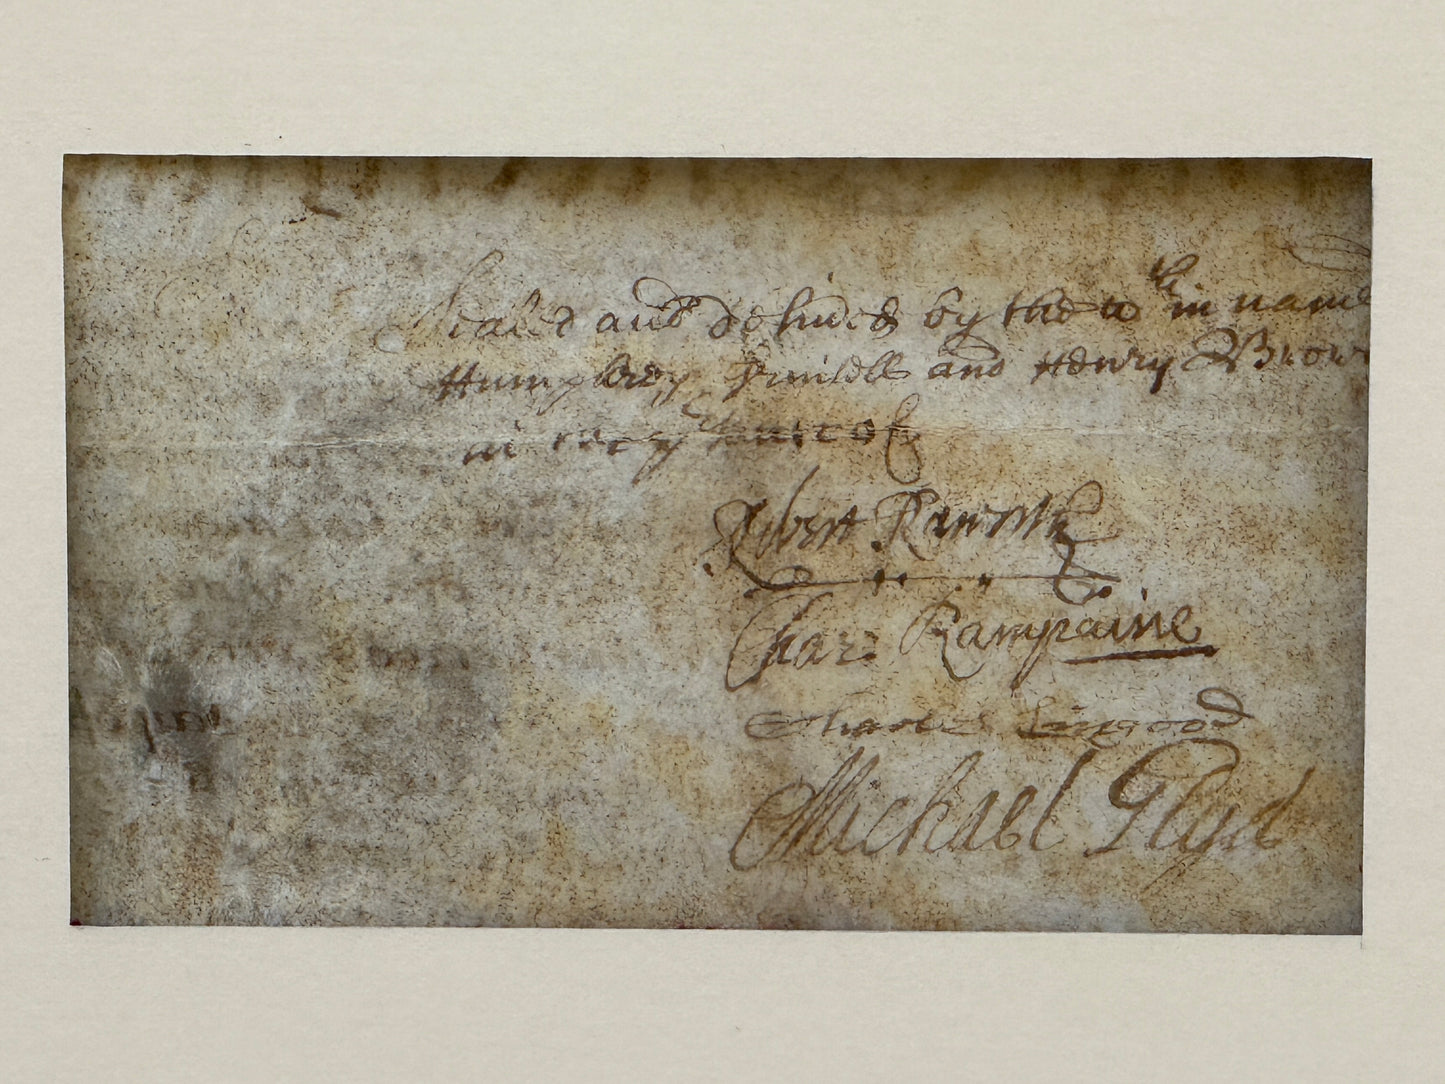 Sealed and deliured by the wthin name
Humphrey and Henry Brow
in the prsence of
Robert
Char: Rampaine
Charles Lingood
Michael Glyd